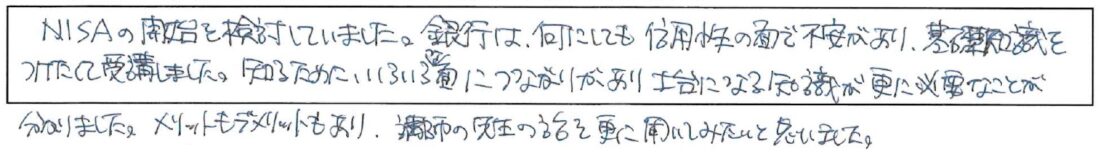 NISAの開始を検討していました。銀行は、何にしても信用性の面で不安があり、基礎知識を
つけたくて受講しました。知るために、いろいろ面につながりがあり土台になる知識が更に必要なことが
分かりました。メリットもデメリットもあり、講師の先生の話を更に聞いてみたいと思いました。